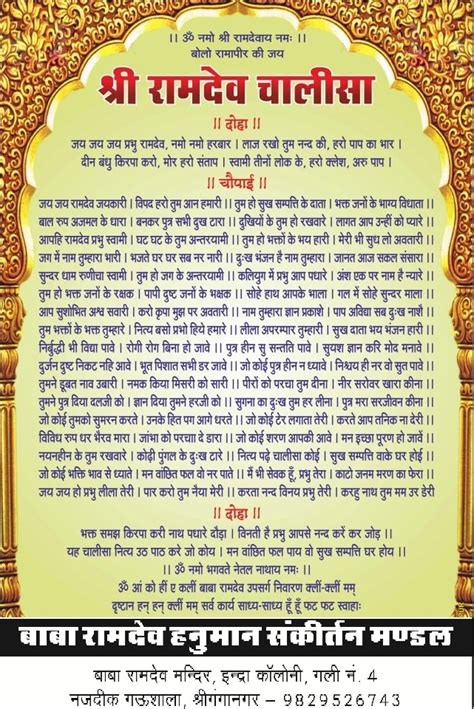 ।। ॐ नमो श्री रामदेवाय नमः ।।
बोलो रामापीर की जय
श्री रामदेव चालीसा
।। दोहा ।।
जय जय जय प्रभु रामदेव, नमो नमो हरबार । लाज रखो तुम नन्द की, हरो पाप का भार ।
दीन बंधु किरपा करो, मोर हरो संताप । स्वामी तीनों लोक के, हरो क्लेश, अरु पाप ।
।। चौपाई ।।
जय जय रामदेव जयकारी । विपद हरो तुम आन हमारी ।। तुम हो सुख सम्पत्ति के दाता । भक्त जनों के भाग्य विधाता ।।
बाल रुप अजमल के धारा । बनकर पुत्र सभी दुख टारा ।। दुखियों के तुम हो रखवारे । लागत आप उन्हीं को प्यारे ।।
आपहि रामदेव प्रभु स्वामी । घट घट के तुम अन्तरयामी ।। तुम हो भक्तों के भय हारी । मेरी भी सुध लो अवतारी ।।
जग में नाम तुम्हारा भारी । भजते घर घर सब नर नारी ।। दुःख भंजन है नाम तुम्हारा । जानत आज सकल संसारा ।।
सुन्दर धाम रुणीचा स्वामी । तुम हो जग के अन्तरयामी ।। कलियुग में प्रभु आप पधारे । अंश एक पर नाम है न्यारे ।।
तुम हो भक्त जनों के रक्षक । पापी दुष्ट जनों के भक्षक ।। सोहे हाथ आपके भाला । गल में सोहे सुन्दर माला ।।
आप सुशोभित अश्व सवारी । करो कृपा मुझ पर अवतारी ।। नाम तुम्हारा ज्ञान प्रकाशे । पाप अविद्या सब दुःख नाशे ।।
तुम भक्तों के भक्त तुम्हारे । नित्य बसो प्रभो हिये हमारे ।। लीला अपरम्पार तुम्हारी । सुख दाता भय भंजन हारी ।।
निर्बुद्धी भी विद्या पावे । रोगी रोग बिना हो जावे ।। पुत्र हीन सु सन्तति पावे । सुयश ज्ञान करि मोद मनावे ।।
दुर्जन दुष्ट निकट नहि आवे । भूत पिशाच सभी डर जावे ।। जो कोई पुत्र हीन न ध्यावे । निश्चय ही नर वो सुत पावे ।।
तुमने डूबत नाव उबारी । नमक किया मिसरी को सारी ।। पीरों को परचा तुम दीना । नीर सरोवर खारा कीना ।।
तुमने पुत्र दिया दलजी को । ज्ञान दिया तुमने हरजी को ।। सुगना का दुःख तुम हर लीना । पुत्र मरा सरजीवन कीना ।।
जो कोई तुमको सुमरन करते । उनके हित पग आगे धरते ।। जो कोई टेर लगाता तेरी । करते आप तनिक ना देरी ।।
विविध रुप धर भैरव मारा । जांभा को परचाा दे डारा ।। जो कोई शरण आपकी आवे । मन इच्छा पूरण हो जावें ।।
नयनहीन के तुम रखवारे । कोढ़ी पुंगल के दुःख टारे ।। नित्य पढ़े चालीसा कोई । सुख सम्पत्ति वाके घर होई ।।
जो कोई भक्ति भाव से ध्याते । मन वांछित फल वो नर पाते ।। मैं भी सेवक हूँ, प्रभु तेरा । काटो जनम मरण का फेरा ।।
जय जय हो प्रभु लीला तेरी । पार करो तुम नैया मेरी ।। करता नन्द विनय प्रभु तेरी । करहु नाथ तुम मम उर डेरी
।। दोहा ।।
भक्त समझ किरपा करी नाथ पधारे दौड़ा । विनती है प्रभु आपसे नन्द करें कर जोड़ ।।
यह चालीसा नित्य उठ पाठ करे जो कोय । मन वांछित फल पाय वो सुख सम्पत्ति घर होय ।।
।। ॐ नमो भगवते नेतल नाथाय नमः ।।
ॐ आं को हीं ए क्लीं बाबा रामदेव उपसर्ग निवारण क्लीं-क्लीं मम्
दृष्टान हन् हन् क्लीं मम् सर्व कार्य साध्य-साध्य हूँ हूँ फट फट स्वाहाः
बाबा रामदेव हनुमान संकीर्तन मण्डल
बाबा रामदेव मन्दिर, इन्द्रा कॉलोनी, गली नं. 4
नजदीक गऊशाला, श्रीगंगानगर – 9829526743